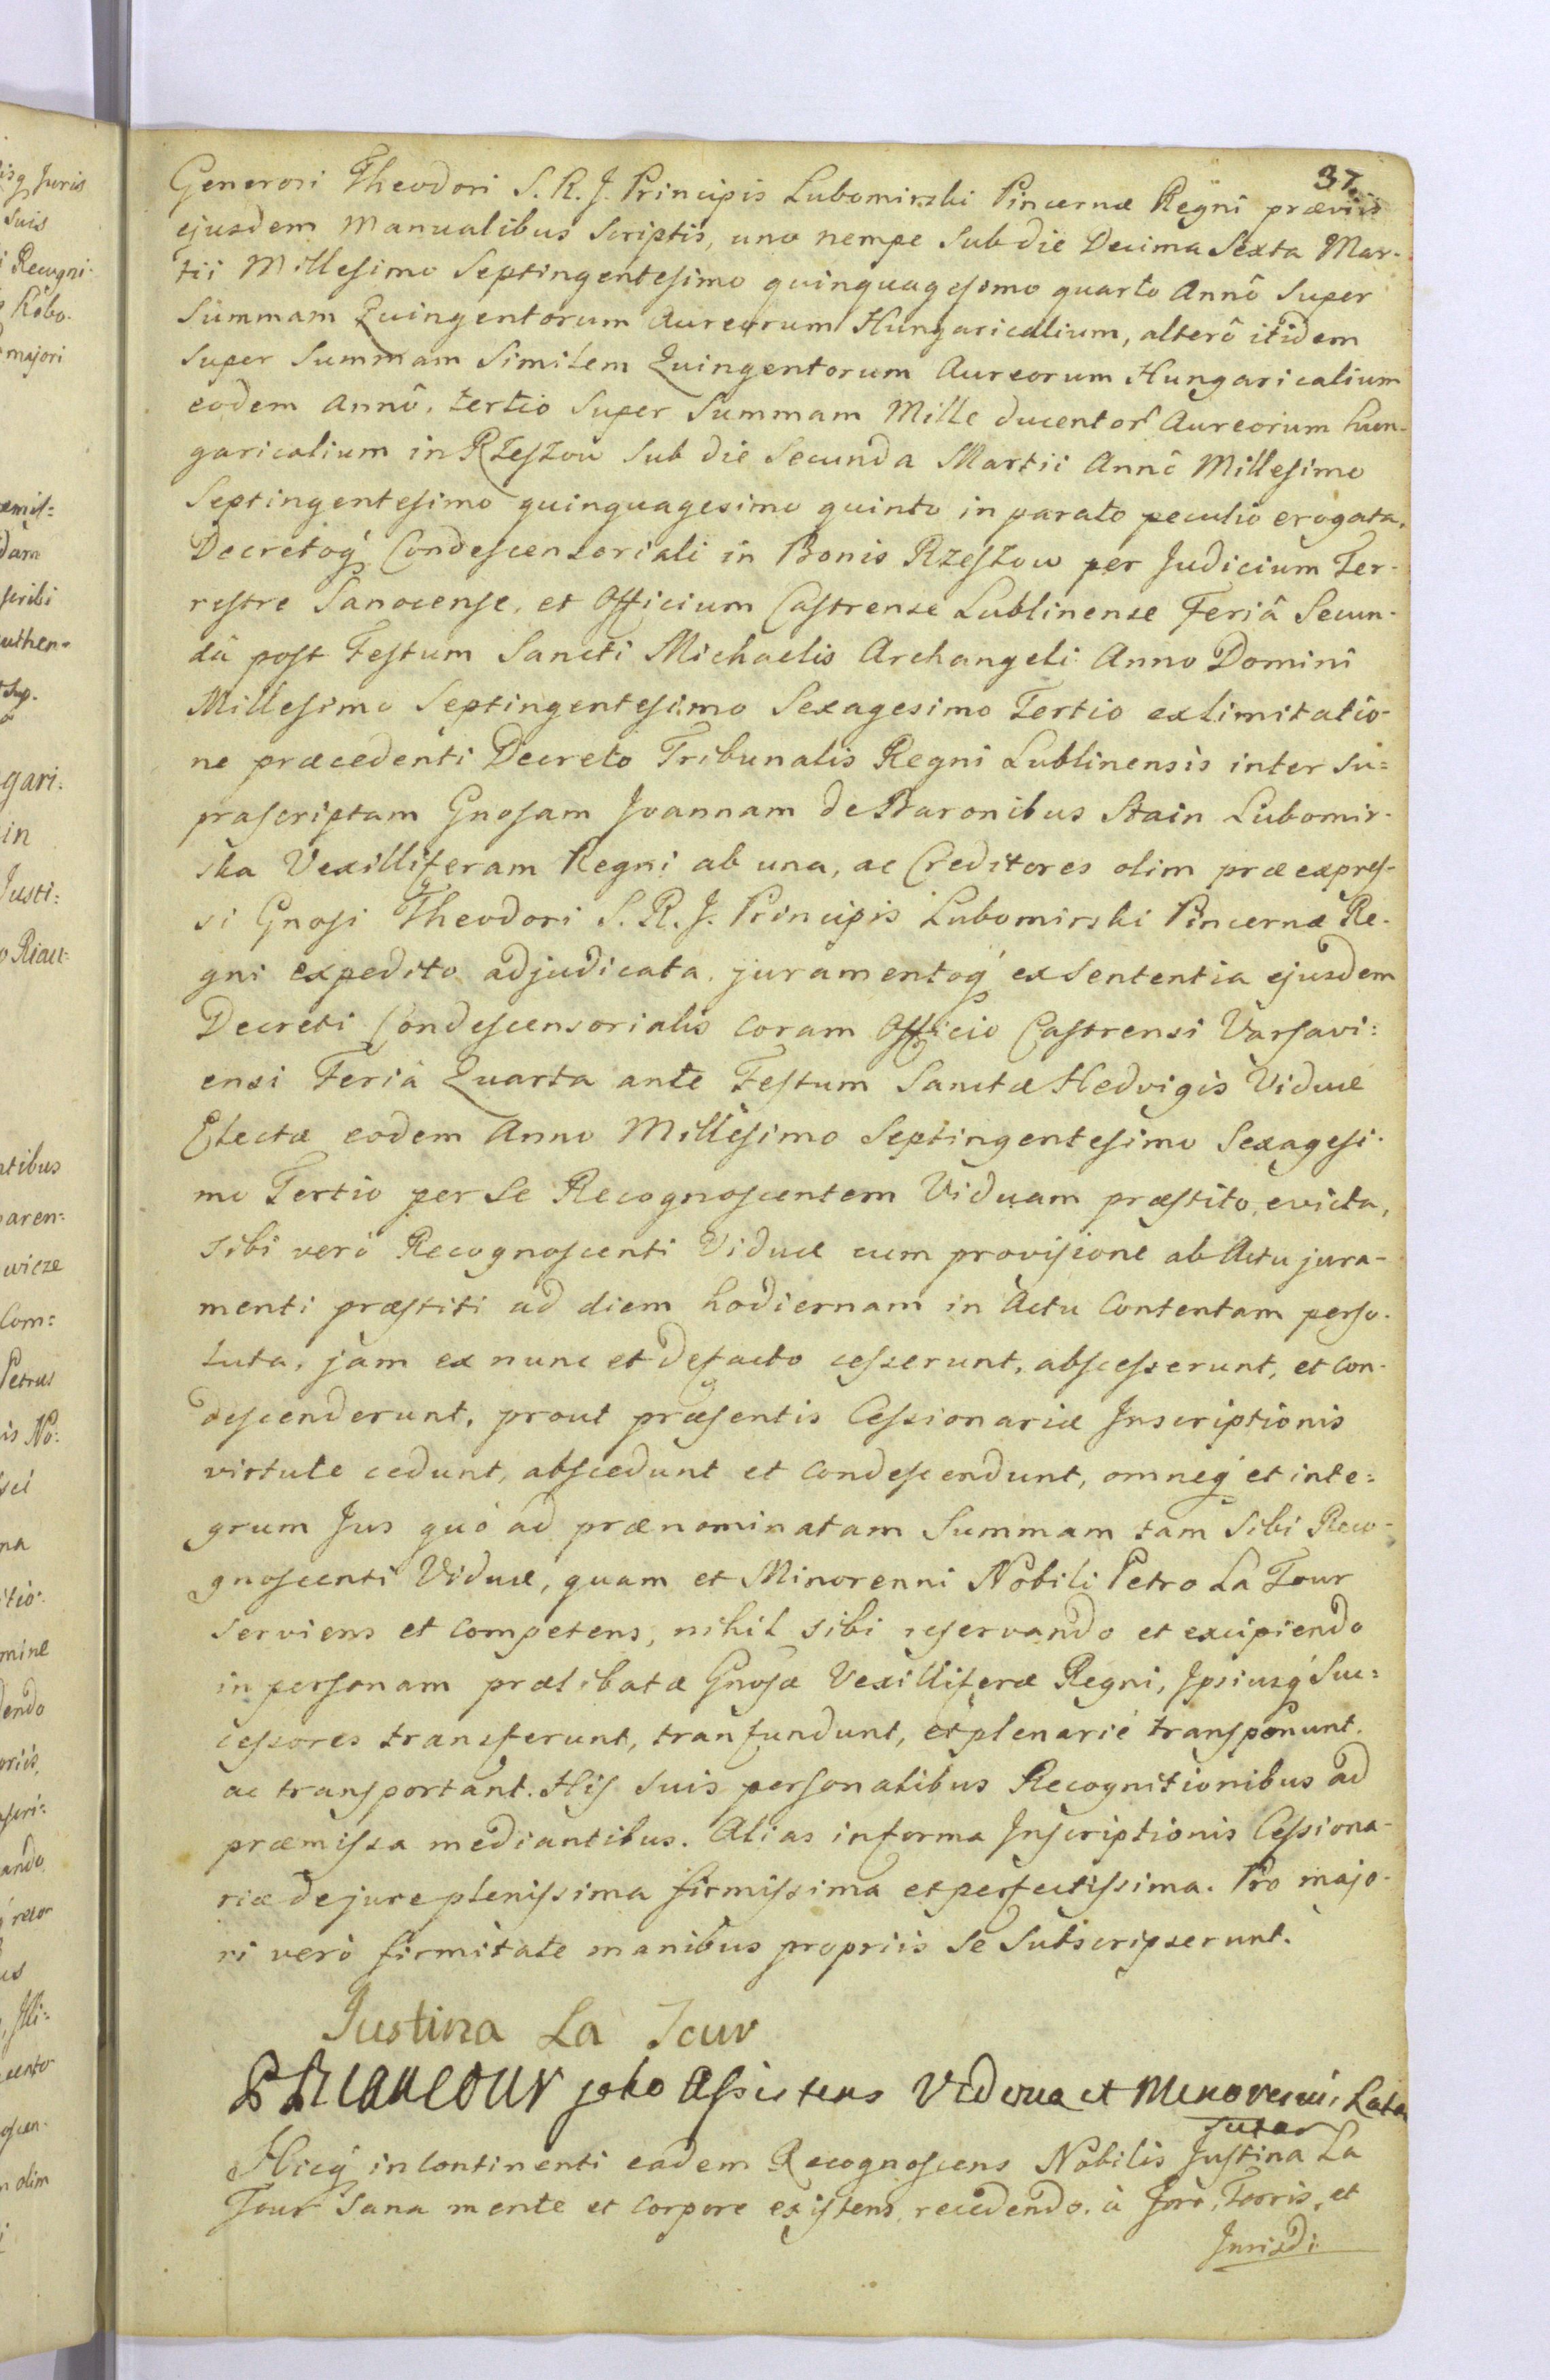 37.
Generosi Theodori S. R. J. Principis Lubomirski Pincernæ Regni præviis
ejusdem Manualibus Scriptis, uno nempe Sub die Decima Sexta Mar-
tii Millesimo Septingentesimo quinquagesimo quarto Annô Super
Summam Quingentorum Aureorum Hungaricalium, alterô itidem
super Summam Similem Quingentorum Aureorum Hungaricalium
eodem Annô, tertio Super Summam Mille ducentor Aureorum hun-
garicalium in Rzeszow Sub die Secunda Martii Annô Millesimo
Septingentesimo quinquagesimo quinto in parato peculio erogata,
Decretoq́ Condescensoriali in Bonis Rzeszow per Judicium Ter-
restre Sanocense, et Officium Castrense Lublinense Feriâ Secun-
dâ post Festum Sancti Michaelis Archangeli Anno Domini
Millesimo Septingentesimo Sexagesimo Tertio ex limitatio-
ne præcedenti Decreto Tribunalis Regni Lublinensis inter su=
prascriptam Gnosam Joannam de Baronibus Stain Lubomir-
ska Vexilliferam Regni ab una, ac Creditores olim præexpres-
si Gnosi Theodori S. R. J. Principis Lubomirski Pincernæ Re-
gni expedito adjudicata, juramentoq́ ex Sententia ejusdem
Decreti Condescensorialis coram Officio Castrensi Varsavi:
ensi Feriâ Quarta ante Festum Sanctæ Hedvigis Viduæ
Electæ eodem Anno Millesimo Septingentesimo Sexagesi-
mo Tertio per Se Recognoscentem Viduam præstito, evicta,
Sibi verò Recognoscenti Viduæ cum provisione ab Actu jura-
menti præstiti ad diem hodiernam in Actu Contentam perso-
luta, jam ex nunc et defacto cesserunt, abscesserunt, et con-
descenderunt, prout præsentis Cessionariæ Inscriptionis
virtute cedunt, abscedunt et condescendunt, omneq́ et inte=
grum Jus quó ad prænominatam Summam tam Sibi Reco-
gnoscenti Viduæ, quam et Minorenni Nobili Petro La Tour
Serviens et Competens, nihil sibi reservando et excipiendo
in personam prælibatæ Gnosæ Vexilliferæ Regni, Ipsiusq́ Suc=
cessores transferunt, tranfundunt, et plenariè transponunt.
ac transportant. His suis personalibus Recognitionibus ad
præmissa mediantibus. Alias in forma Inscriptionis Cessiona-
riæ de jure plenissima firmissima et perfectissima. Pro majo-
ri verò firmitate manibus propriis Se Subscripserunt.
Justina La Tour
jako Assistens Viduæ et
Hicq́ incontinenti eadem Recognoscens Nobilis Justina La
Tour Sana mente et corpore existens, recedendo à Foro, Terris, et
Jurisdi